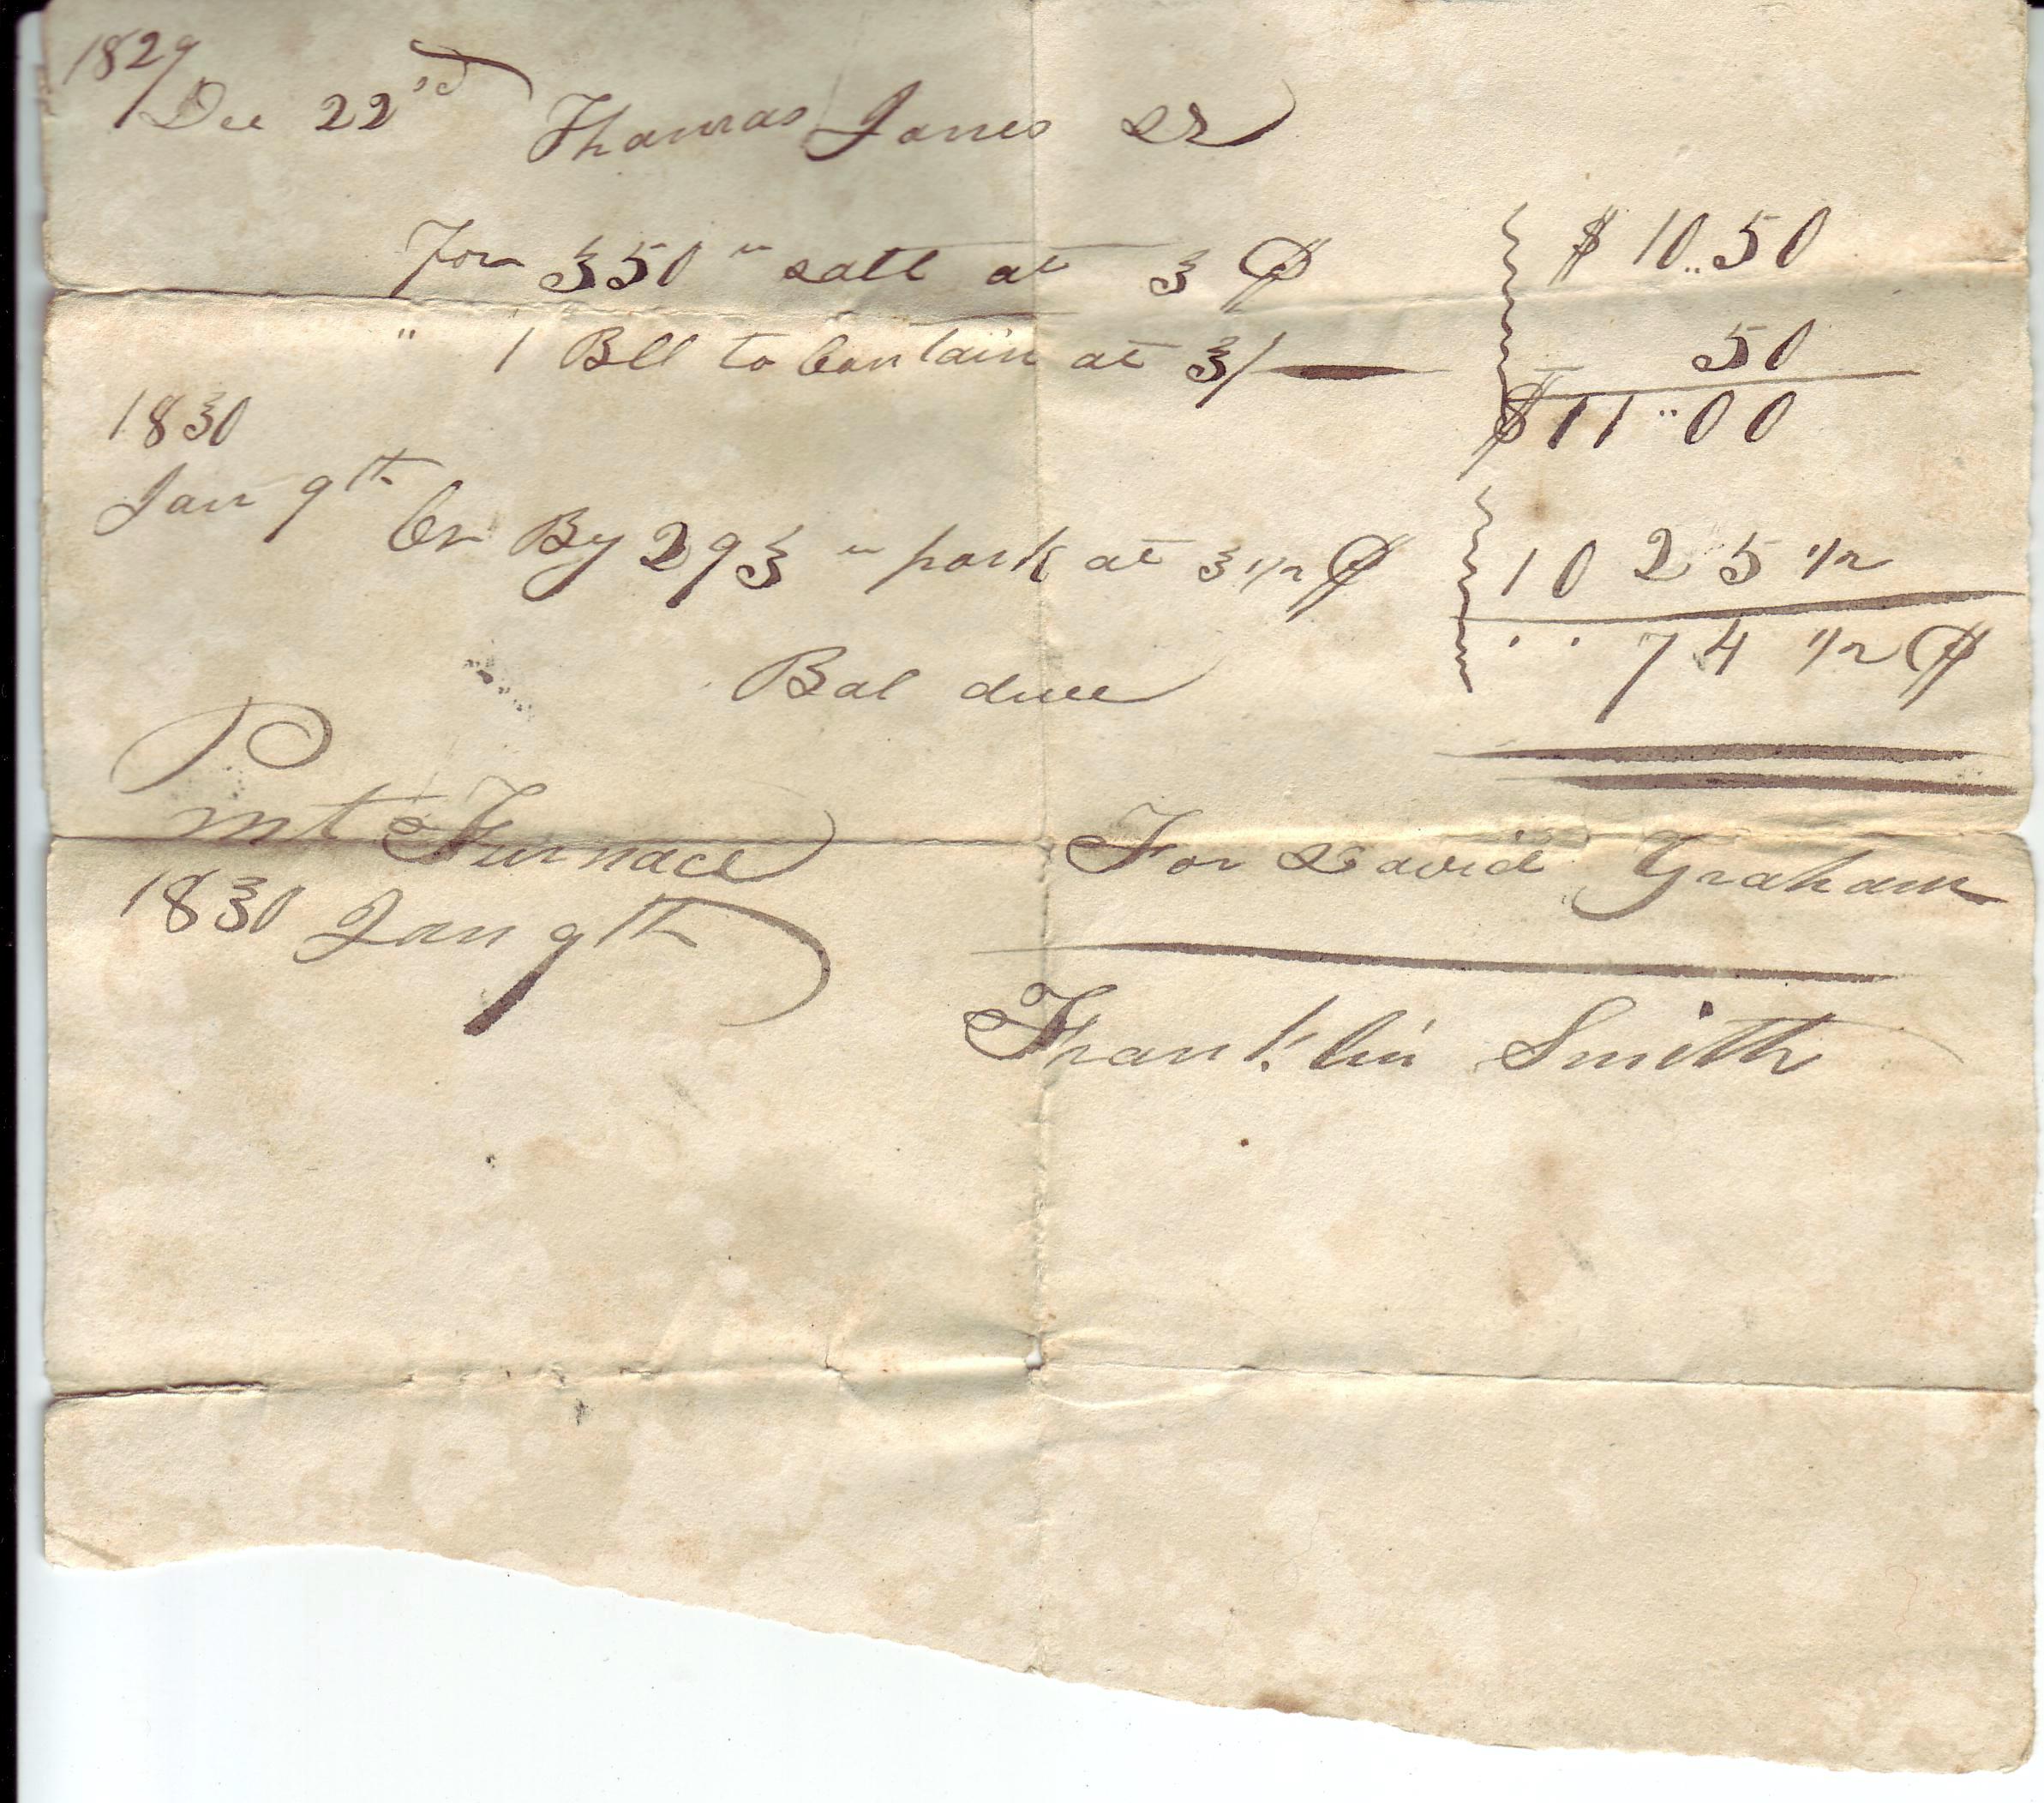 1829
Dec 22nd Thomas Jones Dr
For 350 " salt at 3 ₵ $ 10..50
" 1 Bll to Contain at 3/ 50
$11"00
1830
Jan 9th Cr By 293 " pork at 3 1/2 ₵ 10 25 1/2
Bal due .. 74 1/2 ₵
Mt Furnace
1830 Jan 9th
For David Graham
Franklin Smith